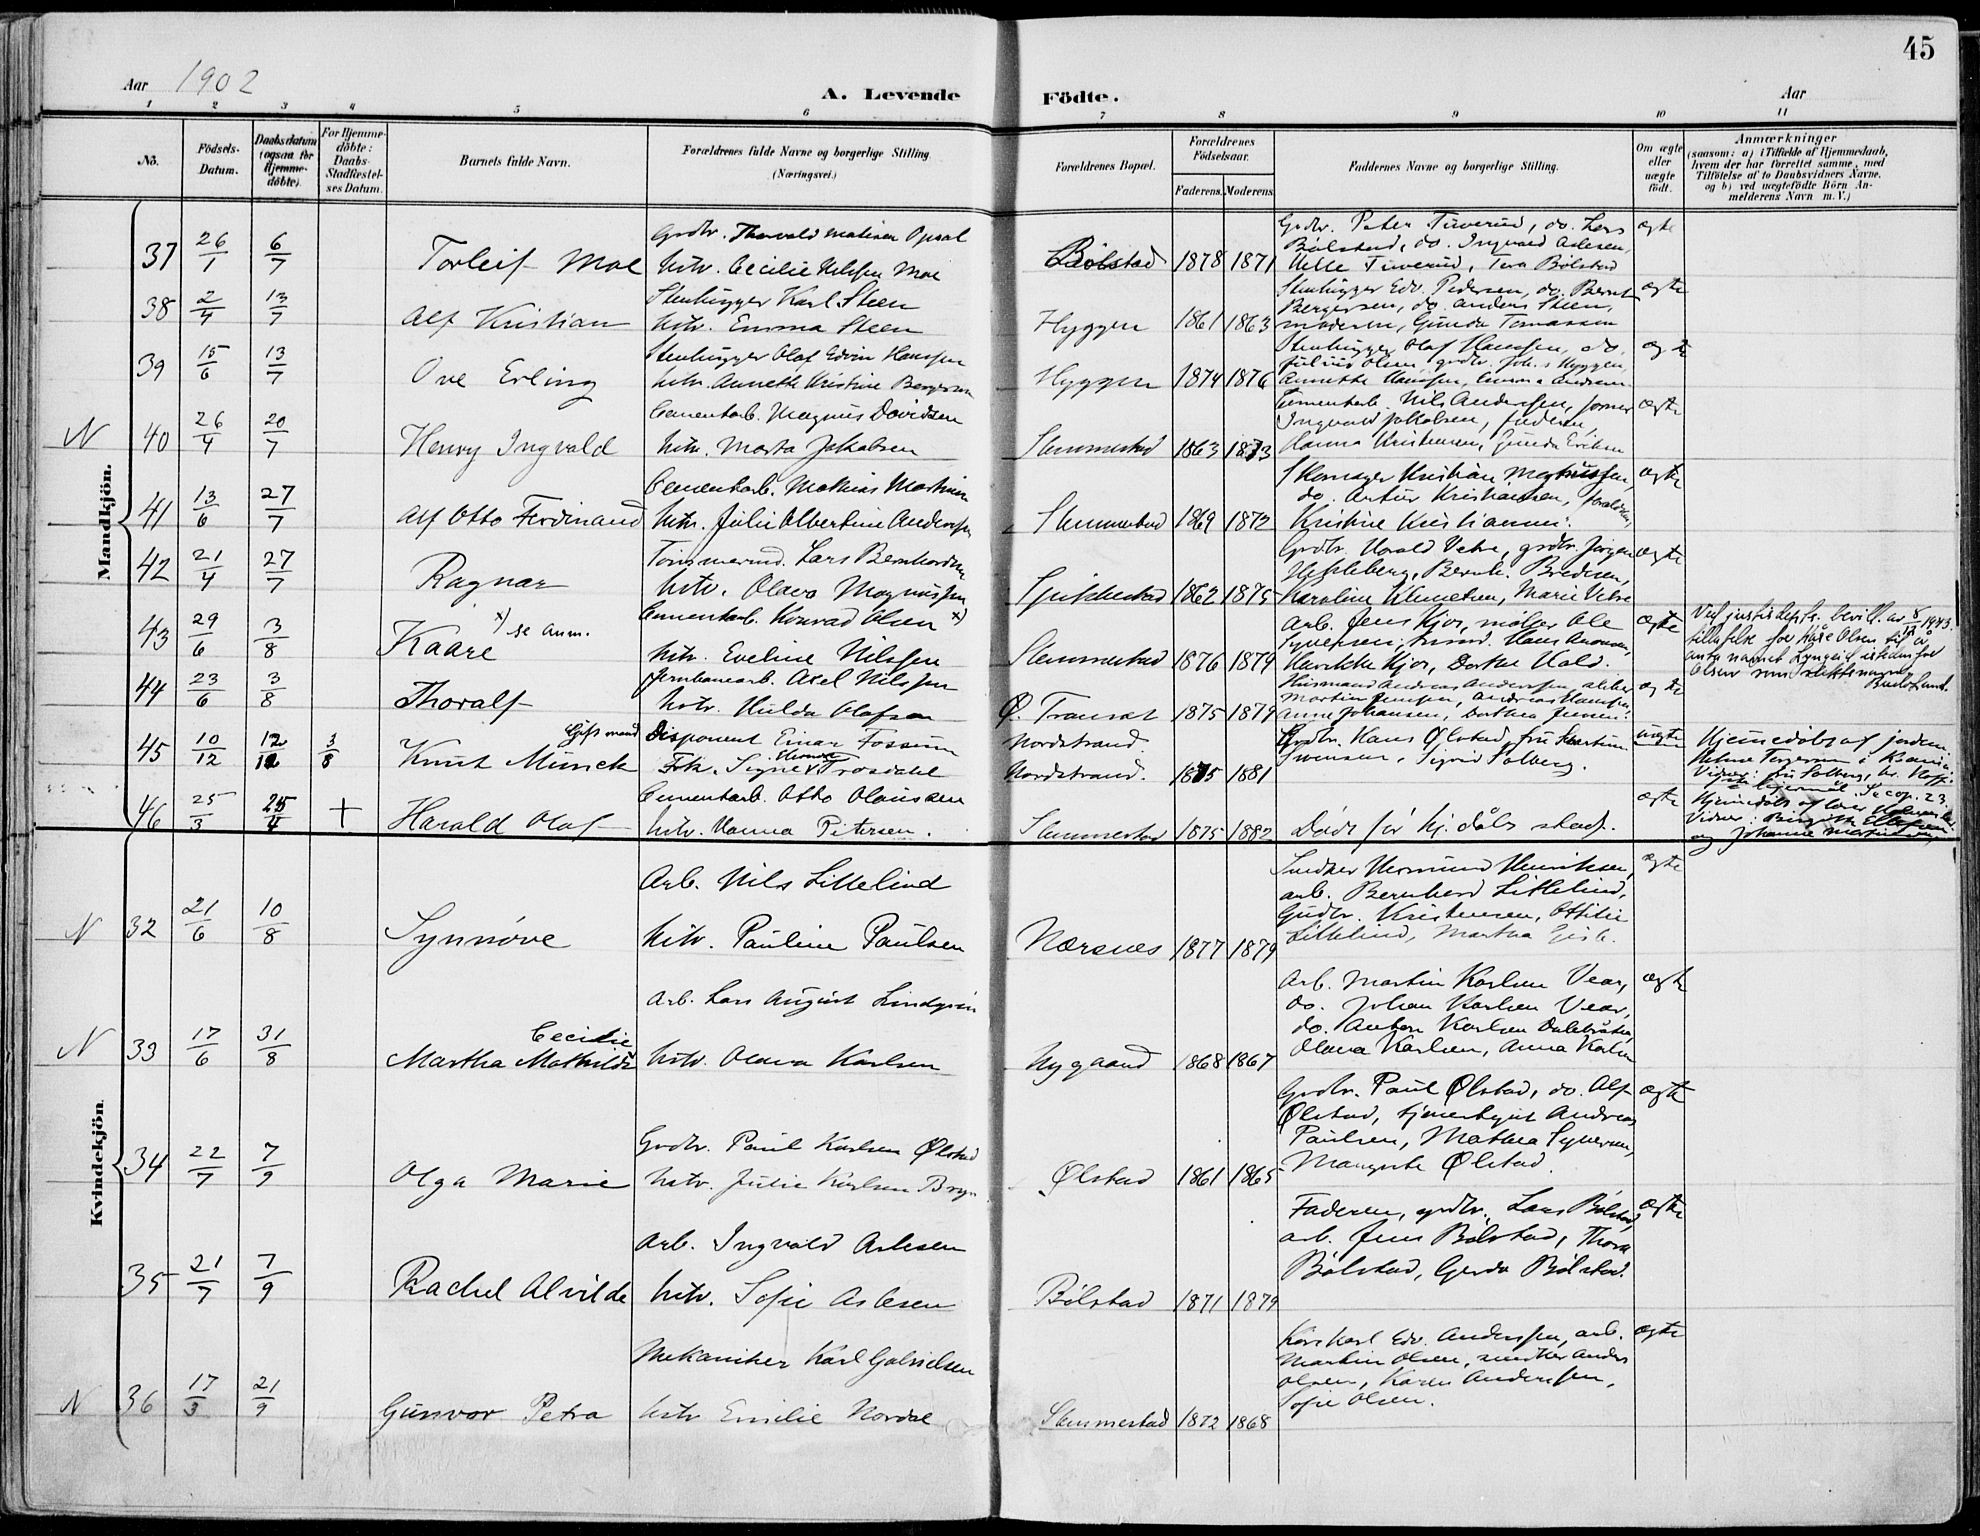 45
Aar 1902
A. Levende Födte.
Aar
1 2 3 4 5 6 7 8 9 10 11
No.
Födsels-Datum.
Daabsdatum (ogsaa for Hjemme-döbte).
For Hjemme-döbte: Daabs-Stadfæstel-ses Datum.
Barnets fulde Navn.
Forældrenes fulde Navne og borgerlige Stilling
(Næringsvei.)
Forældrenes Bopæl.
Forældrenes Födselsaar.
Faderens. Moderens.
Faddernes Navne og borgerlige Stilling.
Om ægte eller uægte födt.
Anmærkninger
(saasom: a) i Tilfælde af Hjemmedaab,
hvem der har forrettet samme, med
Tilföielse af to Daabsvidners Navne,
og b) ved uægtefödte Börn An-
melderens Navn m.V.)
Mandkjön.
37 26/1 6/7 Torleif Moe
Grdbr. Thorvald Opsal
hstr. Cecilie Nilssen Moe
Bølstad 1878 1871
Grdbr. Peter Tuverud, do. Lars
Bølstad, do. Ingvald Aslesen,
Helle Tuverud, Bølstad
ægte
38 2/4 13/7 Alf Kristian
Stenhugger Karl Steen
hstr. Emma Steen
Hyggen 1861 1863
Stenhugger Edv. Pedersen, do. Bernt
Bergersen, do. Anders Steen,
moderen, Gunda Tomassen
ægte
39 15/6 13/7 Ove Erling
Stenhugger Olaf Edvin Hanssen
hstr. Annette Kristine Bergersen
Hyggen 1874 1876
Stenhugger Olaf Hanssen, do.
Julius Olsen, grdbr. Joh.s Hyggen,
Annette Hanssen, Emma Andersen
ægte
N 40 26/4 20/7 Henry Ingvald
Cementarb. Magnus Davidsen
hstr. Marta Jakobsen
Slemmestad 1863 1873
Cementarb. Nils Anderssen,
Ingvald Jakobsen, faderen,
Hanna Kristensen, Gunda Eriksen
ægte
41 13/6 27/7 Alf Otto Ferdinand
Cementarb. Mathias
hstr. Julie Albertine Anderssen
Slemmestad 1869 1872
Skomager Kristian Magnussen,
do. Artur Kristiansen, forældrene,
Kristine Kristiansen.
ægte
42 21/4 27/7 Ragnar
Tömmermd. Lars Bernhardsen
hstr. Olava Magnussen
Spikkestad 1862 1875
Grdbr. Harald Vetre, grdbr. Jørgen
Hekleberg, Bernh. Bredesen,
Karoline Klemetsen, Marie Vetre
ægte
43 29/6 3/8 Kaare x) se anm.
Cementarb. Konrad Olsen x)
hstr. Eveline Nilssen
Slemmestad 1876 1879
Arb. Jens Kjos, møller Ole
Syversen, Hans Aronsen,
Henrikke Kjos, Dorthe Hald.
ægte
Ved just.dept.s bevill. av 8/12 1943
tillatelse for Kåre Olsen til å
anta navnet istedenfor
Olsen som slektsnavn.
44 23/6 3/8 Thoralf
Jernbanearb. Axel Nilssen
hstr. Hulda Olafsen
Ø. Transet 1875 1879
Husmand Andreas Anderssen,
Martin Jenssen, Andreas Hanssen,
Anne Johansen, Dorthea Jensen.
ægte
45 10/12 12/12 3/8 Knut Munck
Gift mand Disponent Einar Fossum
Frk. Signe Trosdahl
Nordstrand.
Nordstrand. 1875 1881
Grdbr. Hans Ølstad, fru
Svensen, Sigrid Solberg.
uægte
Hjemmedøbt af jordem.
Vidner: fru Solberg,
Se cop. 23.
46 25/3 25/4 + Harald Olaf
Cementarb. Otto Olaussen
hstr. Hanna Petersen.
Slemmestad 1875 1882
Døde før hj.dåbs stadf.
ægte
Hjemmedøbt af lærer
Vidner: Birgitte Ellefsen
og Johanne
Kvindekjön
N 32 21/6 10/8 Synnøve
Arb. Nils Littelind
hstr. Pauline Paulsen
Nærsnes 1877 1879
Snedker Hermund Henriksen,
arb. Bernhard Littelind,
Gudbr. Kristensen, Ottilie
Littelind, Martha
ægte
N 33 17/6 31/8 Cecilie
Martha Mathilde
Arb. Lars August Lindqvist
hstr. Olava Karlsen
Nygaard 1868 1867
Arb. Martin Karlsen Vear,
do. Johan Karlsen Vear,
do. Anton Karlsen Dalebråten,
Olava Karlsen, Anna Karlsen
ægte
34 22/7 7/9 Olga Marie
Grdbr. Paul Karlsen Ølstad
hstr. Julie Karlsen
Ølstad 1861 1865
Grdbr. Paul Ølstad, do. Alf
Ølstad, tjenestegut Andreas
Paulsen, Mathea Syversen,
Margrete Ølstad.
ægte
35 21/7 7/9 Rachel Alvilde
Arb. Ingvald Aslesen
hstr. Sofie Aslesen
Bølstad 1871 1879
Faderen, grdbr. Lars Bølstad,
arb. Jens Bølstad, Thora
Bølstad, Gerda Bølstad.
ægte
N 36 17/3 21/9 Gunvor Petra
Mekaniker Karl Gabrielsen
hstr Emilie Nordal
Slemmestad 1872 1868
Karl Edv. Anderssen, arb.
Martin Olsen, snedker Anders
Olsen, Karen Anderssen,
Sofie Olsen.
ægte